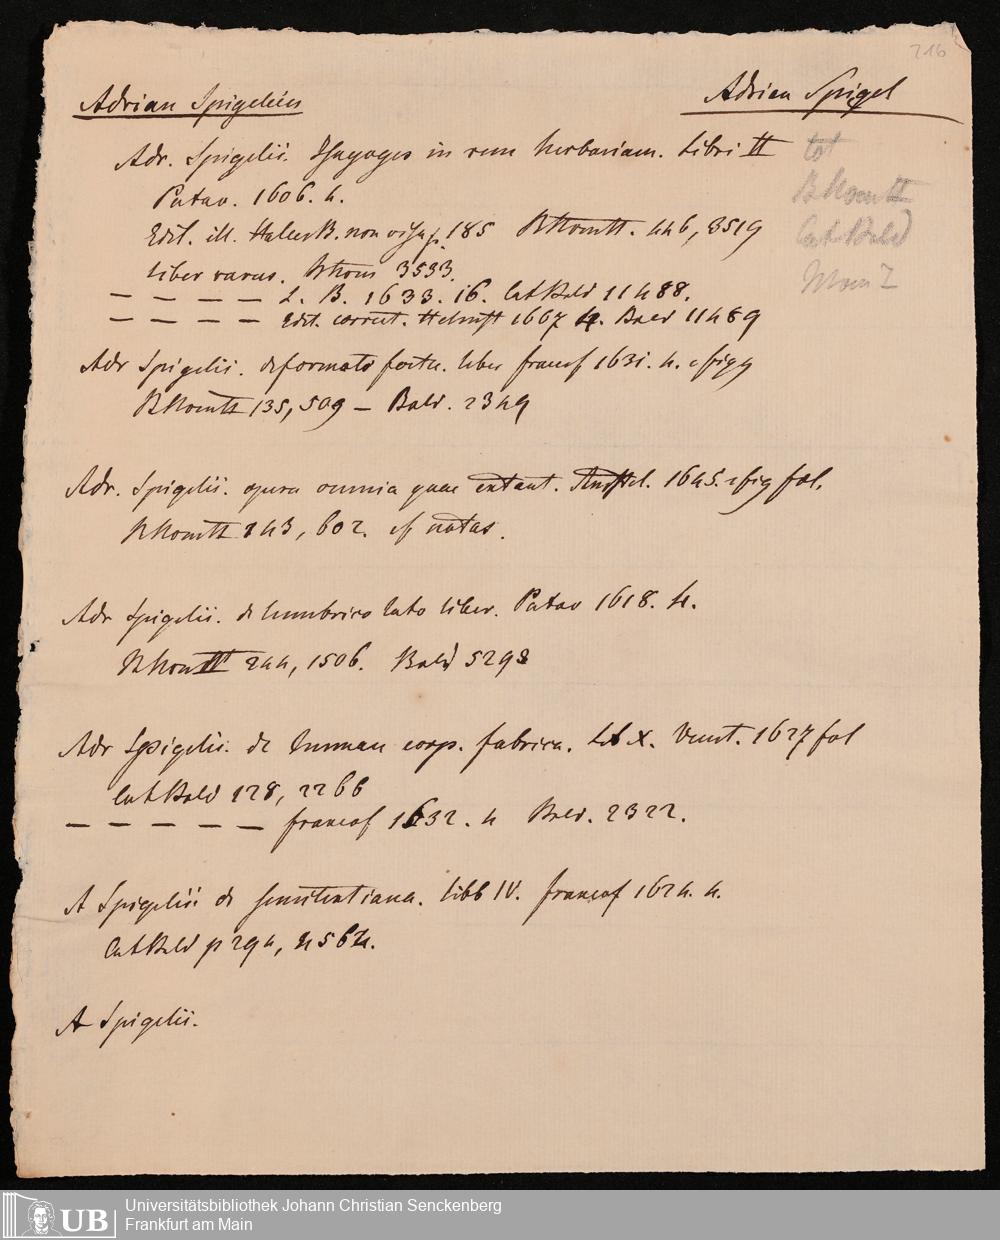 216
Adrian Spigelius
Adrian Spigel
Adr. Spigelii. Isagoges in rem herbariam. Libri II
tot
Patav. 1606. 4.
BKomtII
Edit. ill. Haller B. non visa p. 185 BKomtt. 446, 3519
CatBald
liber rarus. 3533.
— — — — L. B. 1633. 16. CatBald 11488.
— — — — Edit. correct. Helmst 1667 4. Bald 11489
Adr Spigelii. de formato foetu. liber francof 1631. 4. c figg
BKomtt 135, 509 — Bald. 2349
Adr. Spigelii. opera omnia quae extant. Amstel. 1645. c fig fol.
243, 602. cf notas.
Adr Spigelii. de lumbrico lato liber. Patav 1618. 4.
244, 1506. Bald 5298
Adr Spigelii. de human corp. fabrica. Lib X. Venet. 1627 fol
CatBald 128, 2266
— — — — — francof 1632. 4 Bald. 2322.
A Spigelii de semitertiana. libb IV. francof 1624. 4.
CatBald p 294, 4564.
A Spigelii.
UB
Universitätsbibliothek Johann Christian Senckenberg
Frankfurt am Main